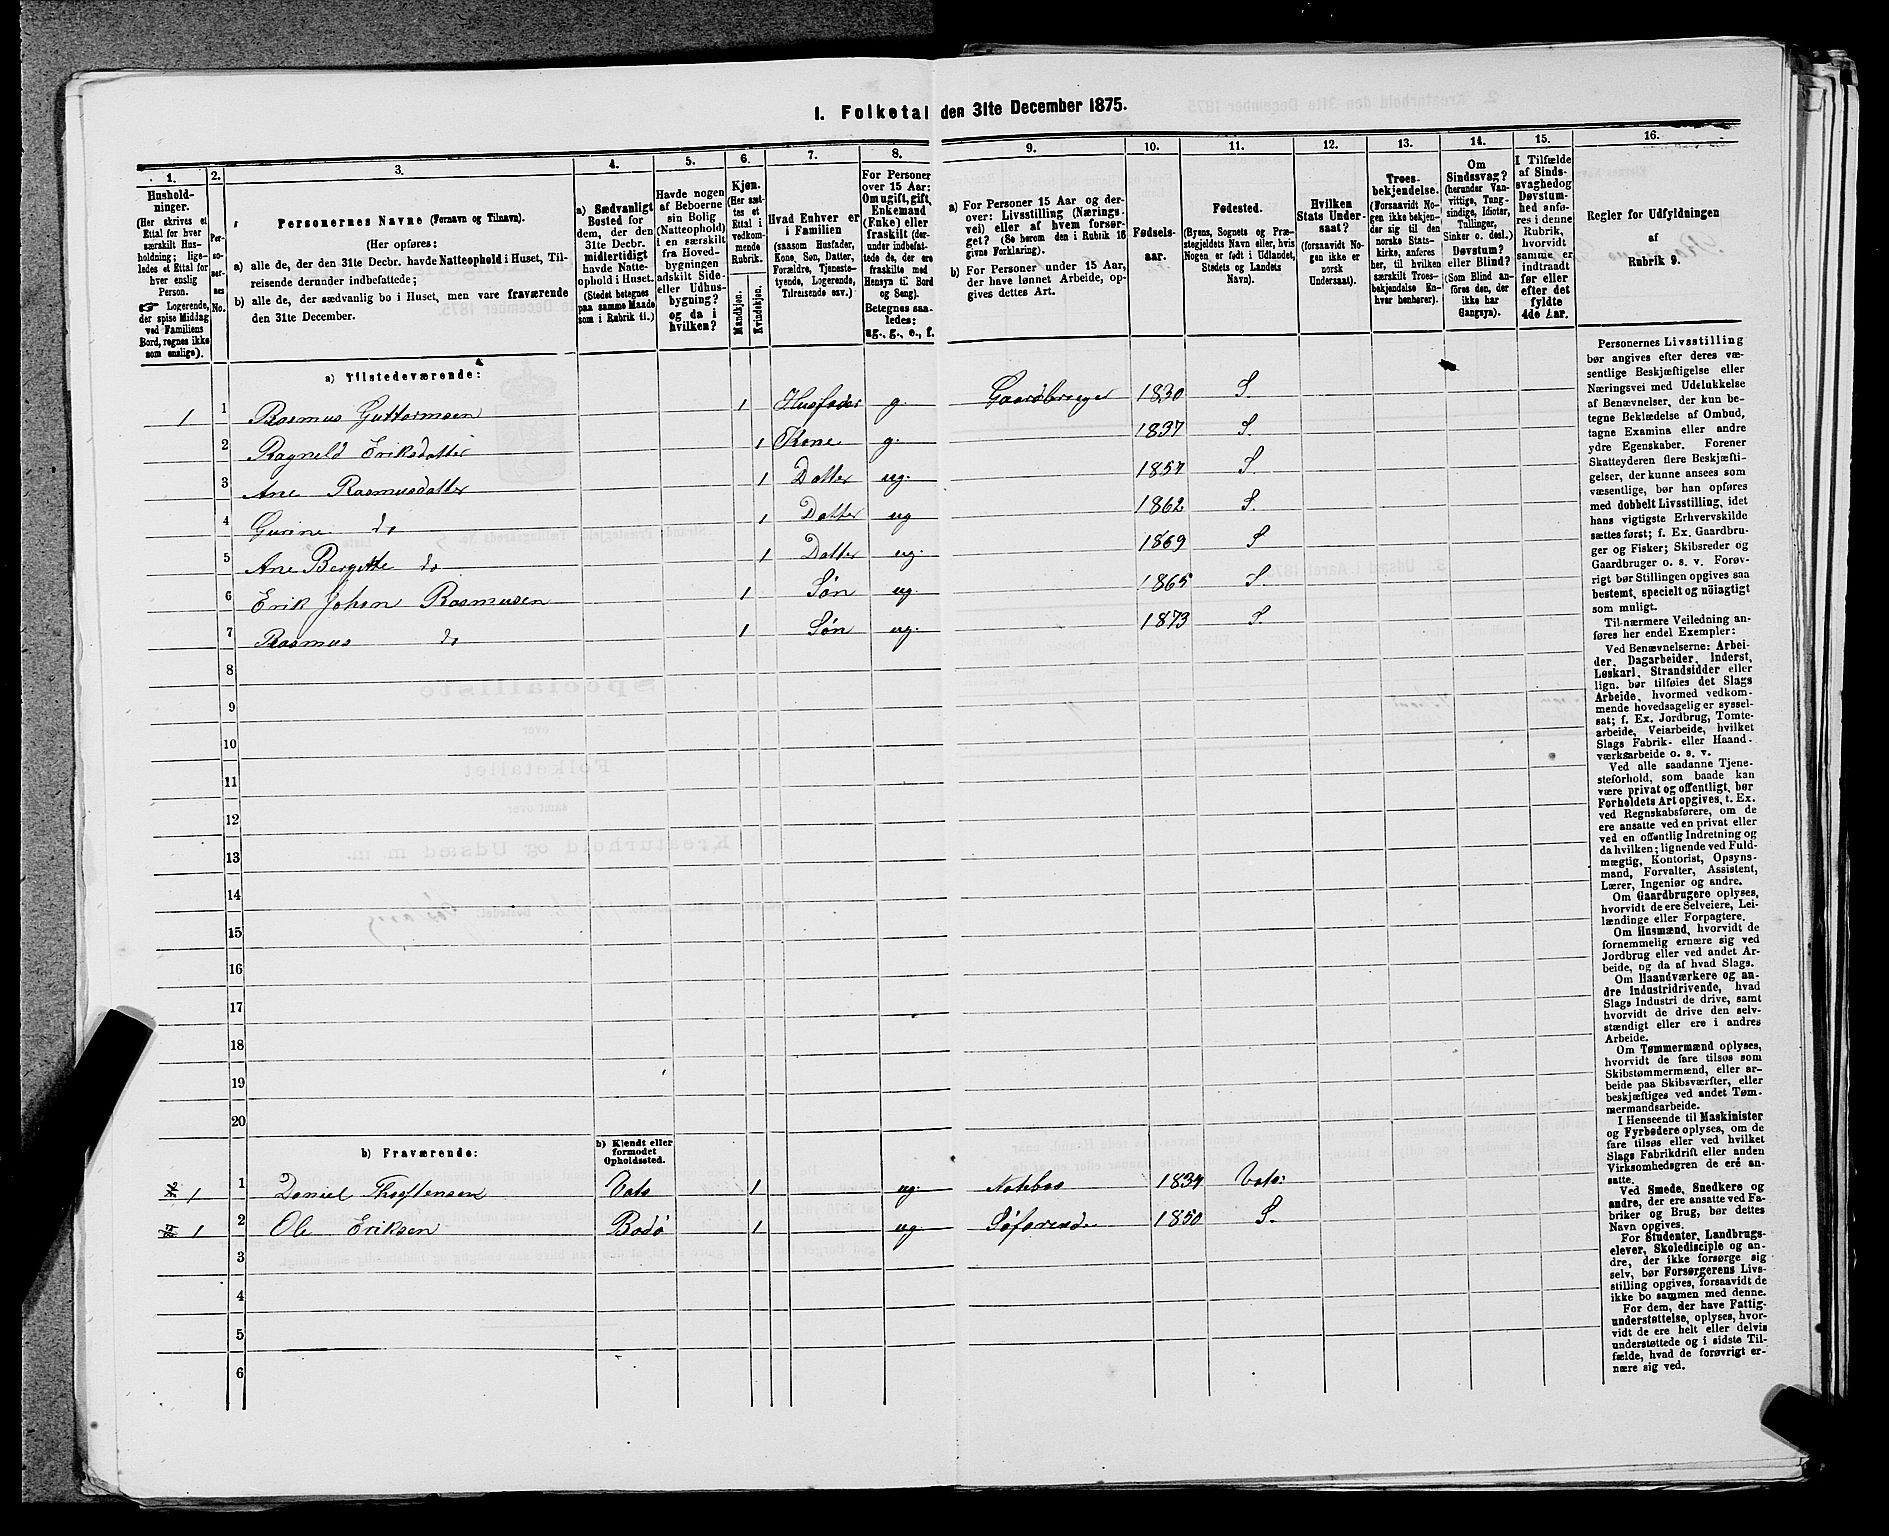 I. Folketal den 31te December 1875.
1. 2. 3. 4. 5. 6. 7. 8. 9. 10. 11. 12. 13. 14. 15. 16.
Hushold-
ninger.
(Her skrives et
Ettal for hver
særskilt Hus-
holdning; lige-
ledes et Ettal for
hver enslig
Person.
☞ Logerende,
der spise Middag
ved Familiens
Bord, regnes ikke
som enslige).
Per-
so-
ner-
nes
No.
Personernes Navne (Fornavn og Tilnavn).
(Her opføres:
a) alle de, der den 31te Decbr. havde Natteophold i Huset, Til-
reisende derunder indbefattede;
b) alle de, der sædvanlig bo i Huset, men vare fraværende
den 31te December.
a) Sædvanligt
Bosted for
dem, der den
31te Decbr.
midlertidigt
havde Natte-
ophold i Huset.
(Stedet betegnes
paa samme Maade
som i Rubrik 11.)
Havde nogen
af Beboerne
sin Bolig
(Natteophold)
i en særskilt
fra Hoved-
bygningen
adskilt Side-
eller Udhus-
bygning?
og da i
hvilken?
Kjøn.
(Her sæt-
tes et
Ettal i
vedkom-
mende
Rubrik.
Mandkjøn.
Kvindekjøn.
Hvad Enhver er
i Familien
(saasom Husfader,
Kone, Søn, Datter,
Forældre, Tjeneste-
tyende, Logerende,
Tilreisende osv.)
For Personer
over 15 Aar:
Om ugift, gift,
Enkemand
(Enke) eller
fraskilt (der-
under indbefat-
tede de, der ere
fraskilte med
Hensyn til Bord
og Seng).
Betegnes saa-
ledes:
ug., g., e., f.
a) For Personer 15 Aar og der-
over: Livsstilling (Nærings-
vei) eller af hvem forsør-
get? (Se herom den i Rubrik 16
givne Forklaring).
b) For Personer under 15 Aar,
der have lønnet Arbeide, op-
gives dettes Art.
Fødsels-
aar.
Fødested.
(Byens, Sognets og Præ-
stegjeldets Navn eller, hvis
Nogen er født i Udlandet,
Stedets og Landets
Navn).
Hvilken
Stats Under-
saat?
(forsaavidt No-
gen ikke er
norsk
Undersaat).
Troes-
bekjendelse.
(Forsaavidt No-
gen ikke bekjen-
der sig til den
norske Stats-
kirke, anføres
her, til hvilken
særskilt Troes-
bekjendelse En-
hver henhører).
Om
Sindssvag?
(herunder Van-
vittige, Tung-
sindige, Idioter,
Tullinger,
Sinker o. desl.)
Døvstum?
eller Blind?
(Som Blind an-
føres den, der
ikke har
Gangsyn).
I Tilfælde
af Sinds-
svaghed og
Døvstum-
hed anfø-
res i denne
Rubrik,
hvorvidt
samme er
indtraadt
før eller
efter det
fyldte
4de Aar.
Regler for Udfyldningen
af
Rubrik 9.
a) Tilstedeværende:
1 1 Rasmus Guttormsen 1 Husfader g. Gaardbruger 1830 S.
2 Ragnild Eriksdatter 1 Kone g. 1837 S.
3 Ane Rasmusdatter 1 Datter ug. 1857 S
4 Gurine do 1 Datter ug 1862 S.
5 Ane Bergitte do 1 Datter ug. 1869 S
6 Erik Johan Rasmusen 1 Søn ug. 1865 S
7 Rasmus do 1 Søn ug. 1873 S.
8
9
10
11
12
13
14
15
16
17
18
19
20
b) Fraværende:
b) Kjendt eller
formodet
Opholdssted.
1 1 Daniel 1 ug. 1834
1 2 Ole Eriksen Bodø 1 ug. Søfarende 1850 S.
3
4
5
6
Personernes Livsstilling
bør angives efter deres væ-
sentlige Beskjæftigelse eller
Næringsvei med Udelukkelse
af Benævnelser, der kun be-
tegne Beklædelse af Ombud,
tagne Examina eller andre
ydre Egenskaber. Forener
Skatteyderen flere Beskjæfti-
gelser, der kunne ansees som
væsentlige, bør han opføres
med dobbelt Livsstilling, idet
hans vigtigste Erhvervskilde
sættes først; f. Ex. Gaardbru-
ger og Fisker; Skibsreder og
Gaardbruger o. s. v. Forøv-
rigt bør Stillingen opgives saa
bestemt, specielt og nøiagtigt
som muligt.
Til nærmere Veiledning an-
føres her endel Exempler:
Ved Benævnelserne: Arbei-
der, Dagarbeider, Inderst,
Løskarl, Strandsidder eller
lign. bør tilføies det Slags
Arbeide, hvormed vedkom-
mende hovedsagelig er syssel-
sat; f. Ex. Jordbrug, Tomte-
arbeide, Veiarbeide, hvilket
Slags Fabrik- eller Haand-
værksarbeide o. s. v.
Ved alle saadanne Tjene-
steforhold, som baade kan
være privat og offentligt, bør
Forholdets Art opgives, t. Ex.
ved Regnskabsførere, om de
ere ansatte ved en privat eller
ved en offentlig Indretning og
da hvilken; lignende ved Fuld-
mægtig, Kontorist, Opsyns-
mand, Forvalter, Assistent,
Lærer, Ingeniør og andre.
Om Gaardbrugere oplyses,
hvorvidt de ere Selveiere, Lei-
lændinge eller Forpagtere.
Om Husmænd, hvorvidt de
fornemmelig ernære sig ved
Jordbrug eller ved andet Ar-
beide, og da af hvad Slags.
Om Haandværkere og an-
dre Industridrivende, hvad
Slags Industri de drive, samt
hvorvidt de drive den selv-
stændigt eller ere i andres
Arbeide.
Om Tømmermænd oplyses,
hvorvidt de fare tilsøs som
Skibstømmermænd, eller ar-
beide paa Skibsværfter, eller
beskjæftiges ved andet Tøm-
mermandsarbeide.
I Henseende til Maskinister
og Fyrbødere oplyses, om de
fare tilsøs eller ved hvilket
Slags Fabrikdrift eller anden
Virksomhedsgren de ere an-
satte.
Ved Smede, Snedkere og
andre, der ere ansatte ved Fa-
briker og Brug, bør dettes
Navn opgives.
For Studenter, Landbrugs-
elever, Skoledisciple og an-
dre, der ikke forsørge sig
selv, bør Forsørgerens Livs-
stilling opgives, forsaavidt de
ikke bo sammen med denne.
For dem, der have Fattig-
understøttelse, oplyses, hvor-
vidt de ere helt eller delvis
understøttede og i sidste Til-
fælde, hvad de forøvrigt er-
nære sig ved.